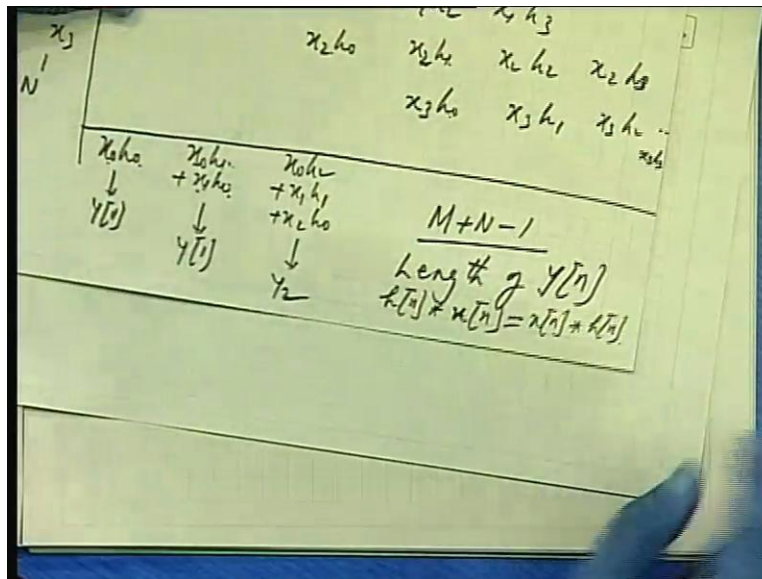 x₁h₃
x₃
x₂h₀ x₂h₁ x₂h₂ x₂h₃
N
x₃h₀ x₃h₁ x₃h₂ ..
x₃h₃
x₀h₀ x₀h₁ x₀h₂
+x₁h₀ +x₁h₁
+x₂h₀
↓ ↓ ↓
y[0] y[1] y₂
M+N-1
Length of y[n]
h[n]*x[n]=x[n]*h[n]